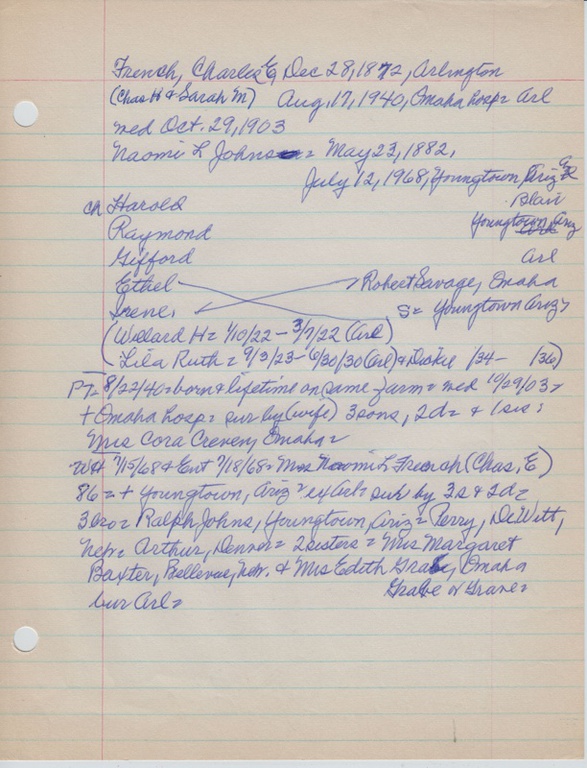 French, Charles E, Dec 28, 1872, Arlington
(Chas H & Sarah M) Aug. 17, 1940, Omaha hosp= Arl
wed Oct. 29, 1903
Naomi L Johns = May 23, 1882,
July 12, 1968, Youngtown, Ariz
ch Harold Blair
Raymond Youngtown, Ariz
Gifford Arl
Ethel Robert Savage, Omaha
Irene, S= Youngtown Ariz
(Willard H= 1/10/22 - 3/7/22 (Arl)
Lila Ruth = 9/3/23 - 6/30/30 (Arl) & Dickie 1/34 - 1/36)
PT= 8/22/40= born & lifetime on same farm= wed 10/29/03=
+ Omaha hosp= sur by (wife) 3 sons, 2d= & 1 sis=
Mrs Cora Creven, Omaha=
WH 7/15/68 & Ent 7/18/68= Mrs Naomi L French (Chas, E)
86= + Youngtown, Ariz= ex Arl= sur by 3s & 2d=
3 bro= Ralph Johns, Youngtown, Ariz= Perry, DeWitt,
Neb= Arthur, Denver= 2 sisters= Mrs Margaret
Baxter, Bellevue, Neb. & Mrs Edith Grabe, Omaha
bur Arl= Grabe or Grave=